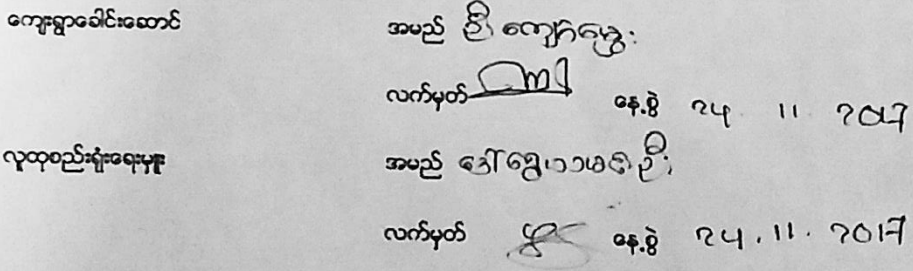 ကျေးရွာခေါင်းဆောင် အမည် ဦးကျော်မွှေး
လက်မှတ် နေ့စွဲ 24. 11 2017
လူထုစည်းရုံးရေးမှူး အမည် ဒေါ်ရွှေ
လက်မှတ် နေ့စွဲ 24.11.2017